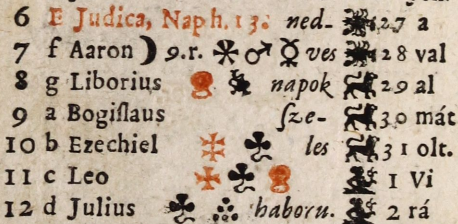 6 E Judica, Naph. 13. ned- 27 a
7 f Aaron ☽ 9.r. ✱ ♂ ☿ ves 28 val
8 g Liborius napok 29 al
9 a Bogiſlaus ſze- 30 mát
10 b Ezechiel les 31 olt.
11 c Leo 1 Vi
12 d Julius haboru. 2 rá